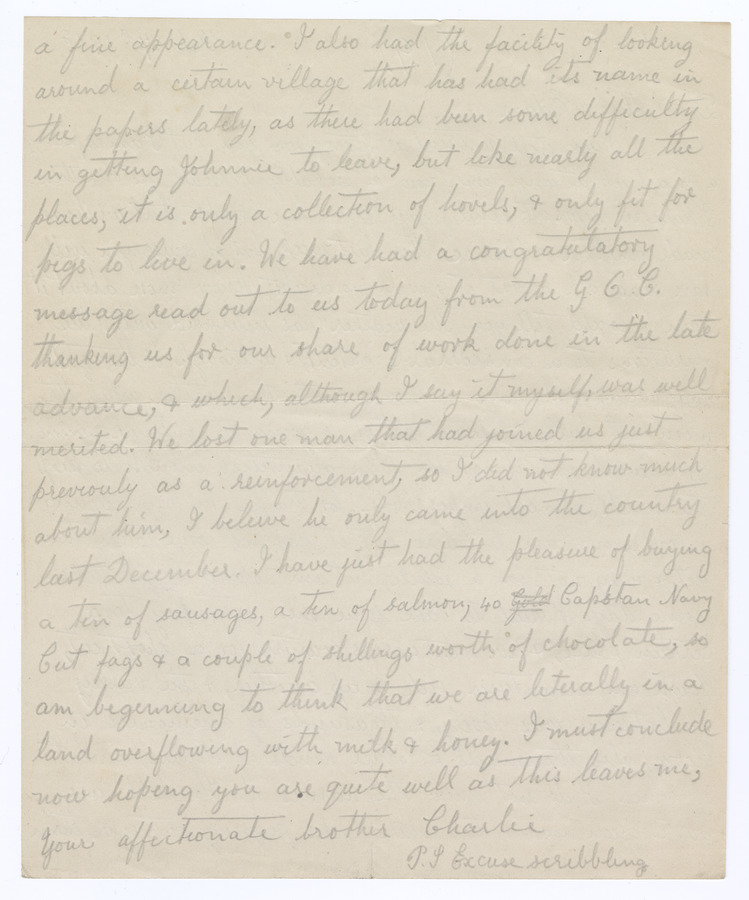 a fine appearance. I also had the facility of looking
around a certain village that has had its name in
the papers lately, as there had been some difficulty
in getting Johnnie to leave, but like nearly all the
places, it is only a collection of hovels, & only fit for
pigs to live in. We have had a congratulatory
message read out to us today from the G O C.
thanking us for our share of work done in the late
advance, & which, although I say it myself, was well
merited. We lost one man that had joined us just
previouly as a reinforcement, so I did not know much
about him, I believe he only came into the country
last December. I have just had the pleasure of buying
a tin of sausages, a tin of salmon, 40 Gold Capstan Navy
Cut fags & a couple of shillings worth of chocolate, so
am beginning to think that we are literally in a
land overflowing with milk & honey. I must conclude
now hoping you are quite well as this leaves me,
Your affectionate brother Charlie
P.S Excuse scribbling